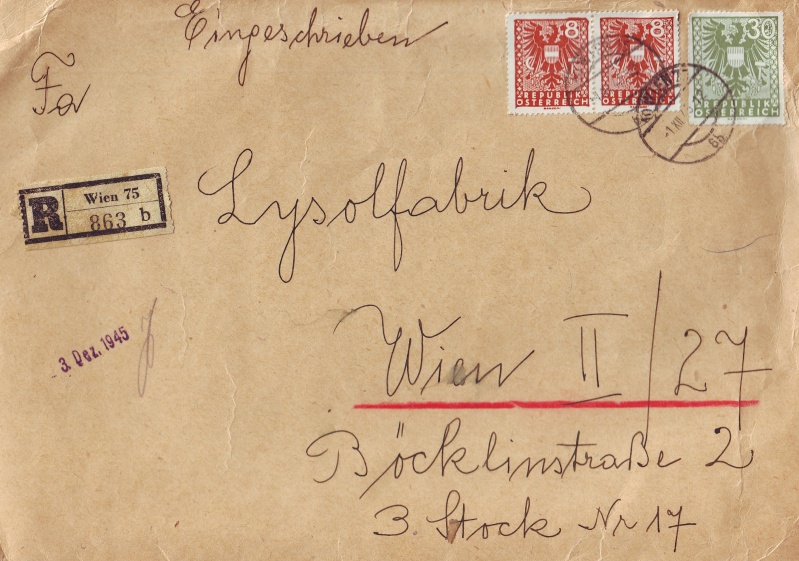 Eingeschrieben
8
8
30
REPUBLIK
ÖSTERREICH
REPUBLIK
ÖSTERREICH
REPUBLIK
ÖSTERREICH
Fa
R
Wien 75
863 b
Lysolfabrik
3. Dez. 1945
Wien II/27
Böcklinstraße 2
3. Stock Nr 17